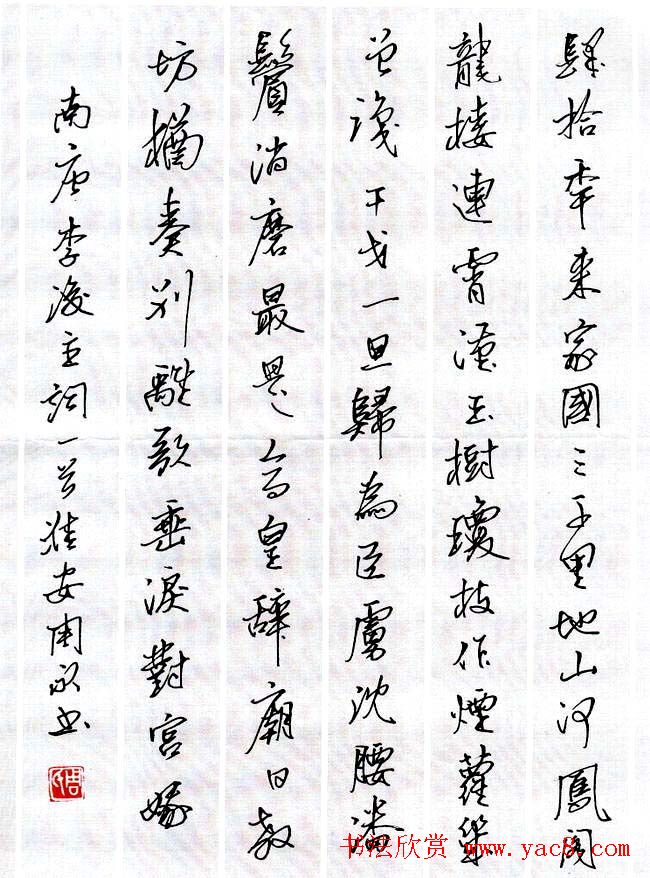 肆拾秊来家國三千里地山河鳳阁
龍楼連霄漢玉樹瓊枝作煙蘿幾
曾識干戈一旦歸為臣虜沈腰潘
鬢消磨最是倉皇辭廟日教
坊猶奏别離歌垂淚對宫娥
南唐李後主詞一首淮安周书
书法欣赏 www.yac8.com